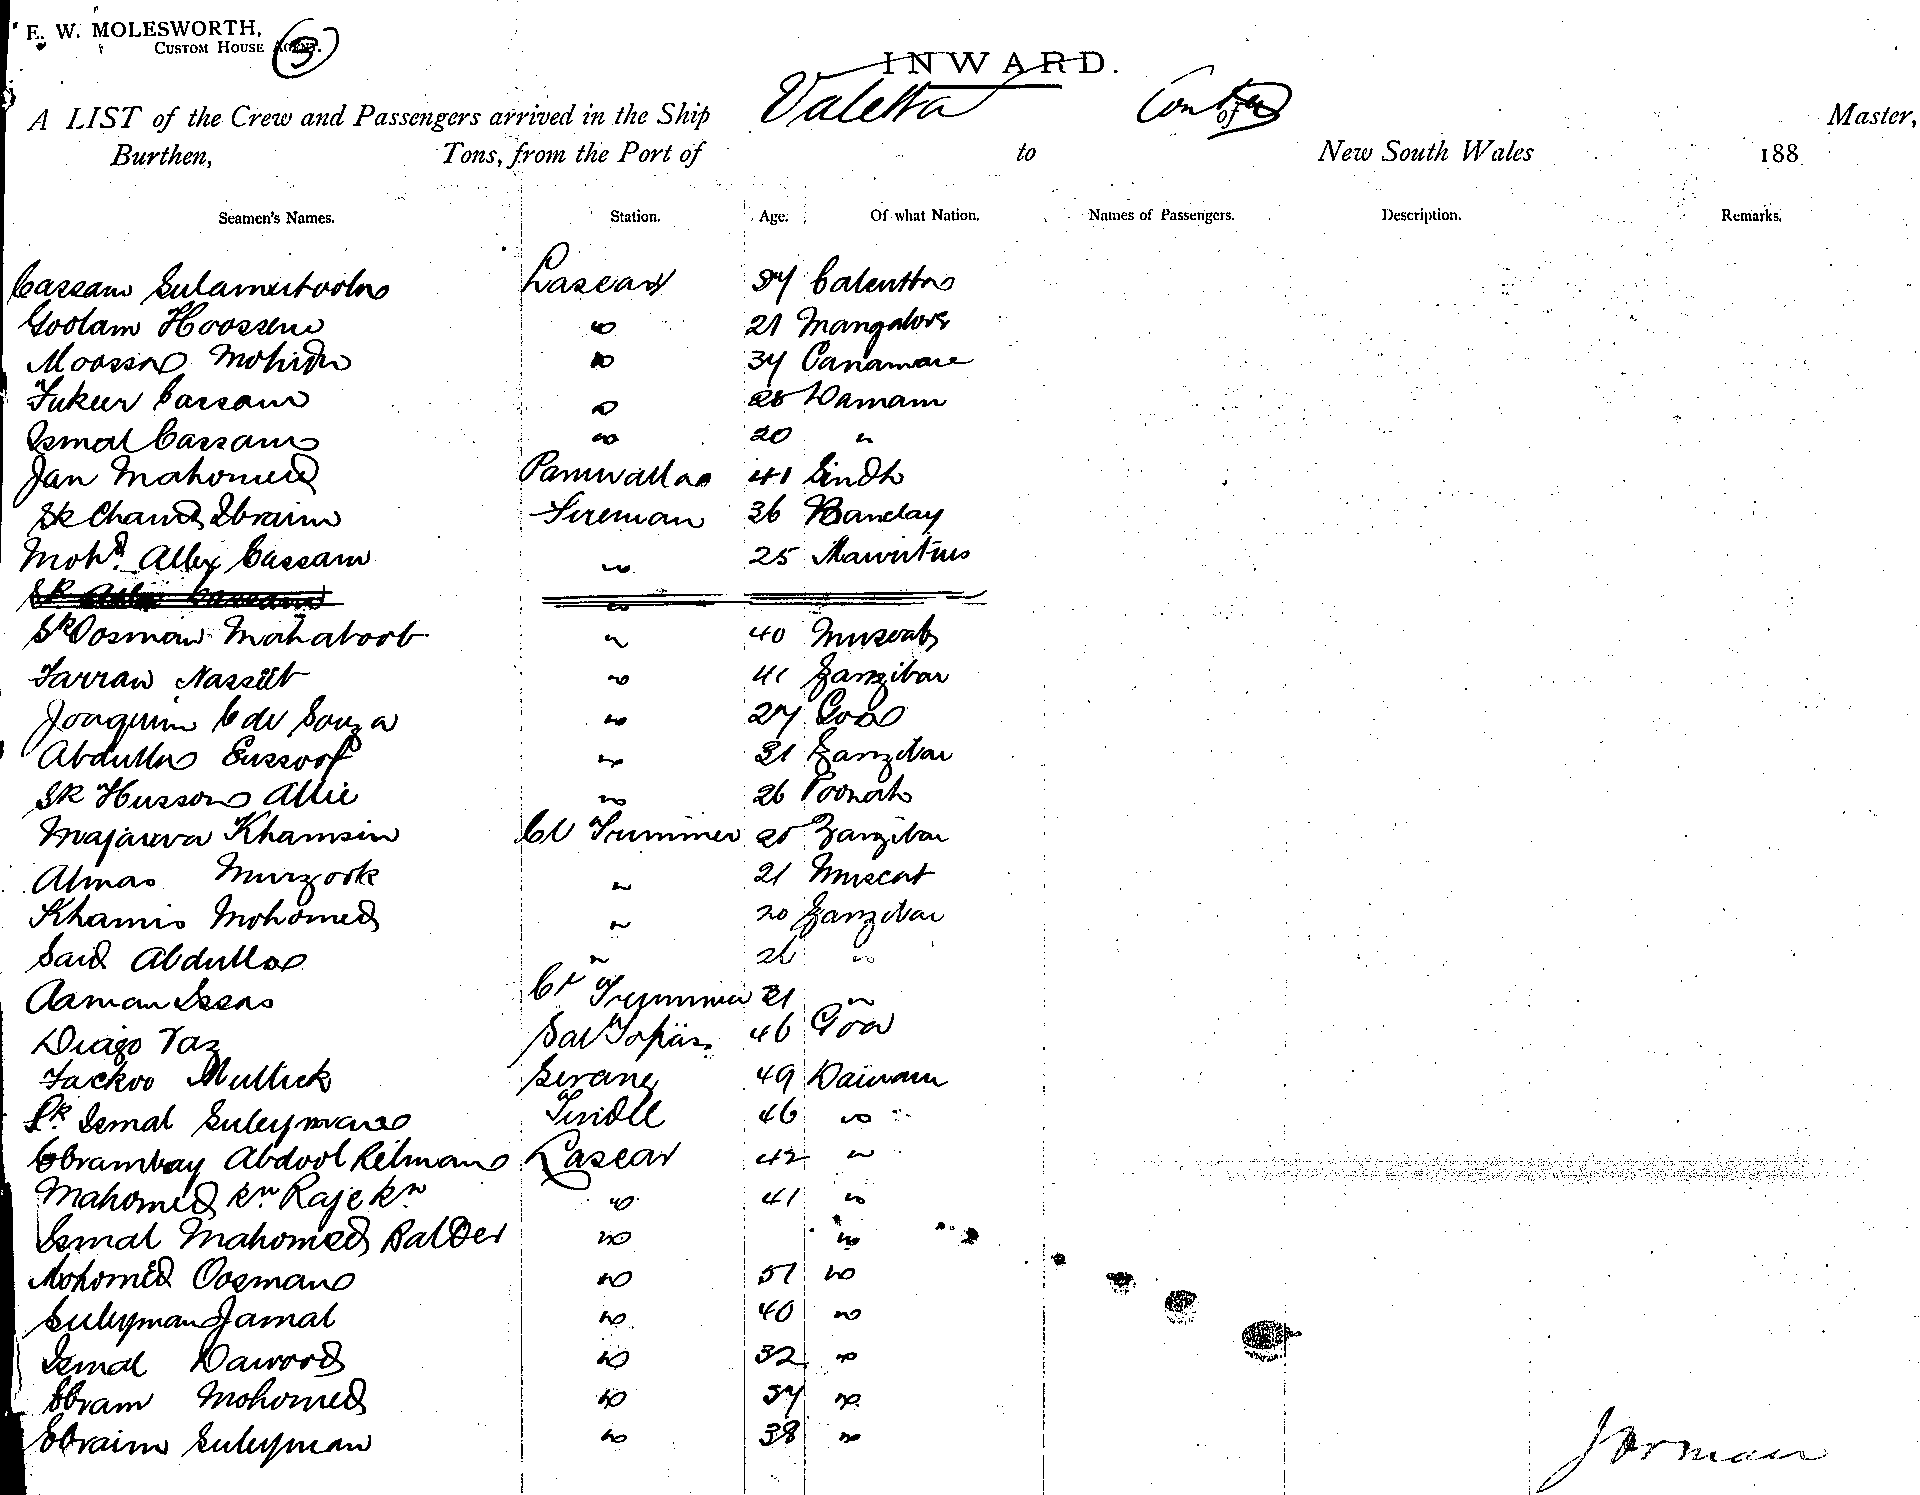 E. W. MOLESWORTH,
CUSTOM HOUSE AGENT.
3
INWARD.
A LIST of the Crew and Passengers arrived in the Ship Valetta Contd of Master,
Burthen, Tons, from the Port of to New South Wales 188
Seamen's Names. Station. Age. Of what Nation. Names of Passengers. Description. Remarks.
Cassam Lascar 37 Calcutta
Goolam Hoossein " 21 Mangalore
Moossa Mohidin " 34 Cananore
Fukeer Cassam " 28 Damam
Ismal Cassam " 20 "
Jan Mahomed Paniwalla 41 Sindh
Sk Chand Ibraim Fireman 36
Mohd. Alley Cassam " 25 Mauritius
Sk Cassam "
Sk Oosman Mahaboob " 40 Muscat
Farran Nasseeb " 41 Zanzibar
Joaquim C de Souza " 27 Goa
Abdulla Eussoof " 31 Zanzibar
Sk Husson Allie " 26 Poonah
Khamsin Cl Trimmer 25 Zanzibar
Almas Murzook " 21 Muscat
Khamis Mohomed " 20 Zanzibar
Said Abdulla " 26 "
Asman Issa Cl Trimmer 21 "
Diago Vaz Topas 46 Goa
Jackoo Mullick Serang 49 Damam
Sk. Ismal Suleyman Tindle 46 "
Ebrambay Abdool Rehman Lascar 42 "
Mahomed Kn Raje Kn " 41 "
Ismal Mahomed Balder " "
Mohomed Oosman " 51 "
Suleyman Jamal " 40 "
Ismal Dawood " 32 "
Ebram Mohomed " 37 "
Ebraim Suleyman " 38 "